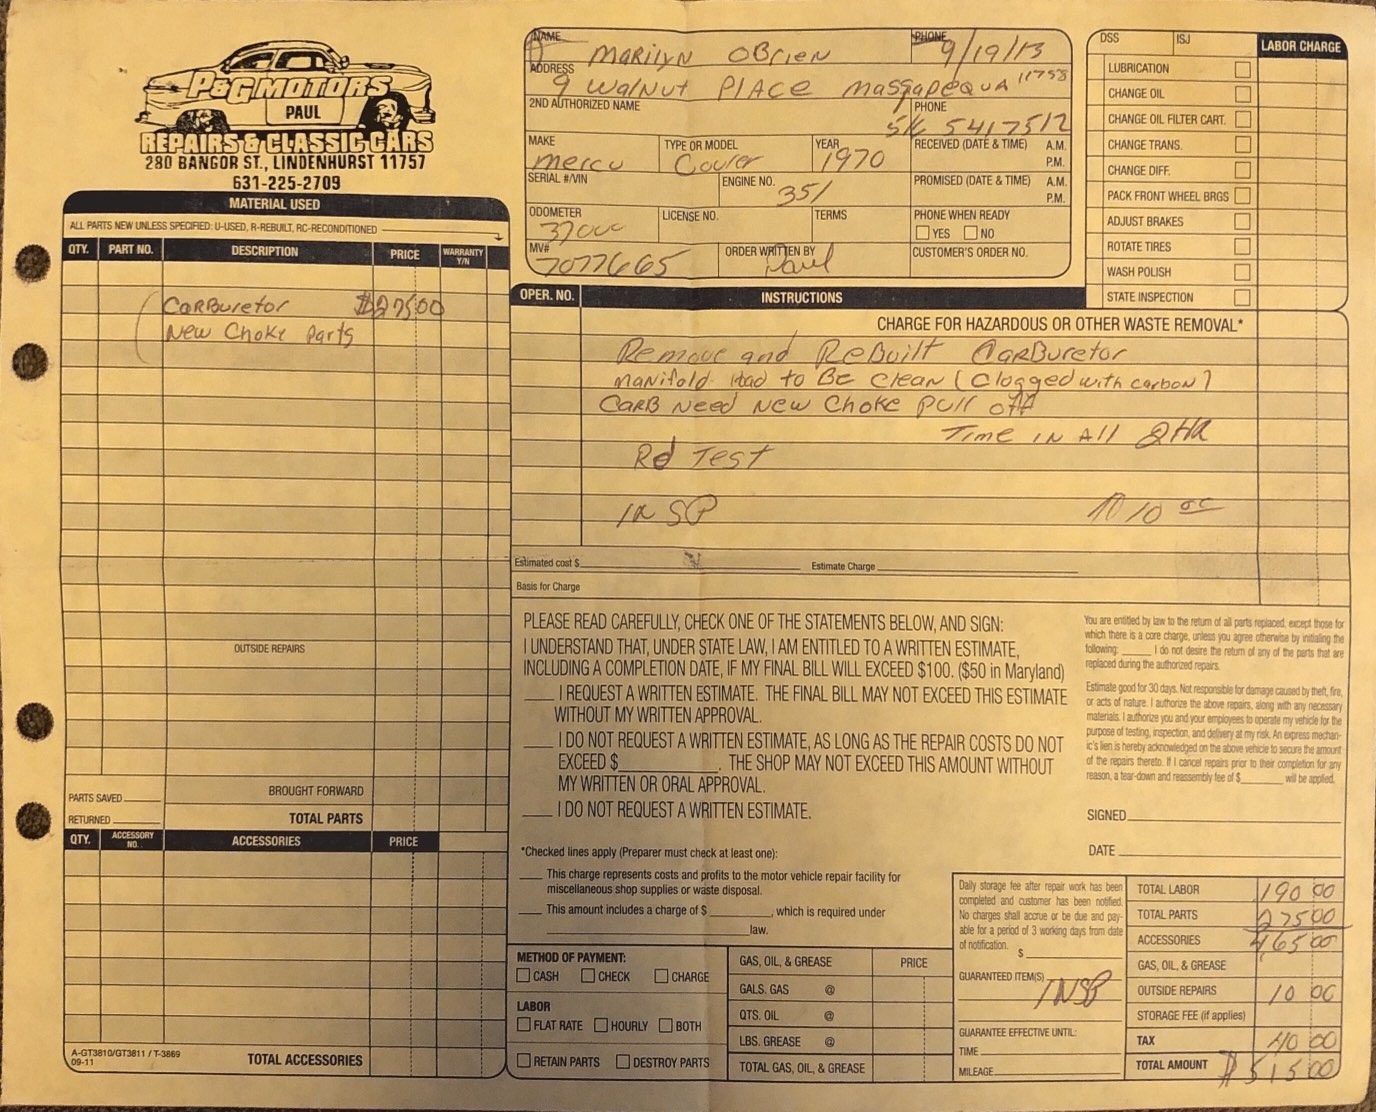 P&G MOTORS
PAUL
REPAIRS & CLASSIC CARS
280 BANGOR ST., LINDENHURST 11757
631-225-2709
NAME Marilyn OBrien
PHONE 9/19/13
ADDRESS 9 Walnut Place Massapequa 11758
2ND AUTHORIZED NAME
PHONE 516 5417512
MAKE Mercu
TYPE OR MODEL
YEAR 1970
RECEIVED (DATE & TIME) A.M. P.M.
SERIAL #/VIN
ENGINE NO. 351
PROMISED (DATE & TIME) A.M. P.M.
ODOMETER 37000
LICENSE NO.
TERMS
PHONE WHEN READY
YES NO
MV# 7077665
ORDER WRITTEN BY Paul
CUSTOMER'S ORDER NO.
DSS ISJ LABOR CHARGE
LUBRICATION
CHANGE OIL
CHANGE OIL FILTER CART.
CHANGE TRANS.
CHANGE DIFF.
PACK FRONT WHEEL BRGS
ADJUST BRAKES
ROTATE TIRES
WASH POLISH
STATE INSPECTION
MATERIAL USED
ALL PARTS NEW UNLESS SPECIFIED: U-USED, R-REBUILT, RC-RECONDITIONED
QTY. PART NO. DESCRIPTION PRICE WARRANTY Y/N
Carburetor $27500
New Choke Parts
OUTSIDE REPAIRS
PARTS SAVED
BROUGHT FORWARD
RETURNED
TOTAL PARTS
QTY. ACCESSORY NO. ACCESSORIES PRICE
A-GT3810/GT3811 / T-3869
09-11
TOTAL ACCESSORIES
OPER. NO. INSTRUCTIONS
CHARGE FOR HAZARDOUS OR OTHER WASTE REMOVAL*
Remove and ReBuilt CarBuretor
manifold Had to BE clean (Clogged with carbon)
CARB Need New Choke Pull off
Time IN All 2HR
Rd Test
INSP 10 00
Estimated cost $ Estimate Charge
Basis for Charge
PLEASE READ CAREFULLY, CHECK ONE OF THE STATEMENTS BELOW, AND SIGN:
I UNDERSTAND THAT, UNDER STATE LAW, I AM ENTITLED TO A WRITTEN ESTIMATE,
INCLUDING A COMPLETION DATE, IF MY FINAL BILL WILL EXCEED $100. ($50 in Maryland)
I REQUEST A WRITTEN ESTIMATE. THE FINAL BILL MAY NOT EXCEED THIS ESTIMATE
WITHOUT MY WRITTEN APPROVAL.
I DO NOT REQUEST A WRITTEN ESTIMATE, AS LONG AS THE REPAIR COSTS DO NOT
EXCEED $ . THE SHOP MAY NOT EXCEED THIS AMOUNT WITHOUT
MY WRITTEN OR ORAL APPROVAL.
I DO NOT REQUEST A WRITTEN ESTIMATE.
*Checked lines apply (Preparer must check at least one):
This charge represents costs and profits to the motor vehicle repair facility for
miscellaneous shop supplies or waste disposal.
This amount includes a charge of $ , which is required under
law.
You are entitled by law to the return of all parts replaced, except those for
which there is a core charge, unless you agree otherwise by initialing the
following: I do not desire the return of any of the parts that are
replaced during the authorized repairs.
Estimate good for 30 days. Not responsible for damage caused by theft, fire,
or acts of nature. I authorize the above repairs, along with any necessary
materials. I authorize you and your employees to operate my vehicle for the
purpose of testing, inspection, and delivery at my risk. An express mechan-
ic's lien is hereby acknowledged on the above vehicle to secure the amount
of the repairs thereto. If I cancel repairs prior to their completion for any
reason, a tear-down and reassembly fee of $ will be applied.
SIGNED
DATE
METHOD OF PAYMENT:
CASH CHECK CHARGE
LABOR
FLAT RATE HOURLY BOTH
RETAIN PARTS DESTROY PARTS
GAS, OIL, & GREASE PRICE
GALS. GAS @
QTS. OIL @
LBS. GREASE @
TOTAL GAS, OIL, & GREASE
Daily storage fee after repair work has been
completed and customer has been notified.
No charges shall accrue or be due and pay-
able for a period of 3 working days from date
of notification. $
GUARANTEED ITEM(S)
INSP
GUARANTEE EFFECTIVE UNTIL:
TIME
MILEAGE
TOTAL LABOR 190 00
TOTAL PARTS 275 00
ACCESSORIES 465 00
GAS, OIL, & GREASE
OUTSIDE REPAIRS 10 00
STORAGE FEE (if applies)
TAX 40 00
TOTAL AMOUNT $515 00